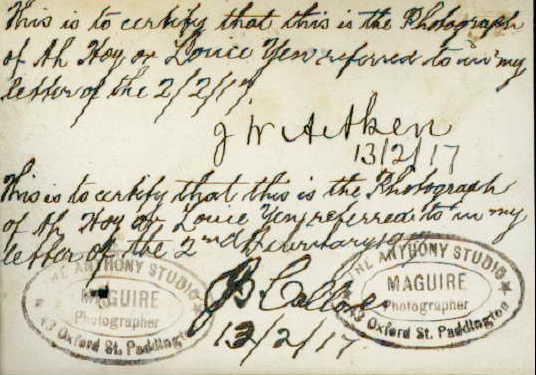 This is to certify that this is the Photograph
of Ah Hoy or Louie Yen referred to in my
letter of the 2/2/17
J W Aitken
13/2/17
This is to certify that this is the Photograph
of Ah Hoy or Louie Yen, referred to in my
letter of the 2nd February
THE ANTHONY STUDIO
MAGUIRE
Photographer
Oxford St. Paddington
THE ANTHONY STUDIO
MAGUIRE
Photographer
Oxford St. Paddington
13/2/17